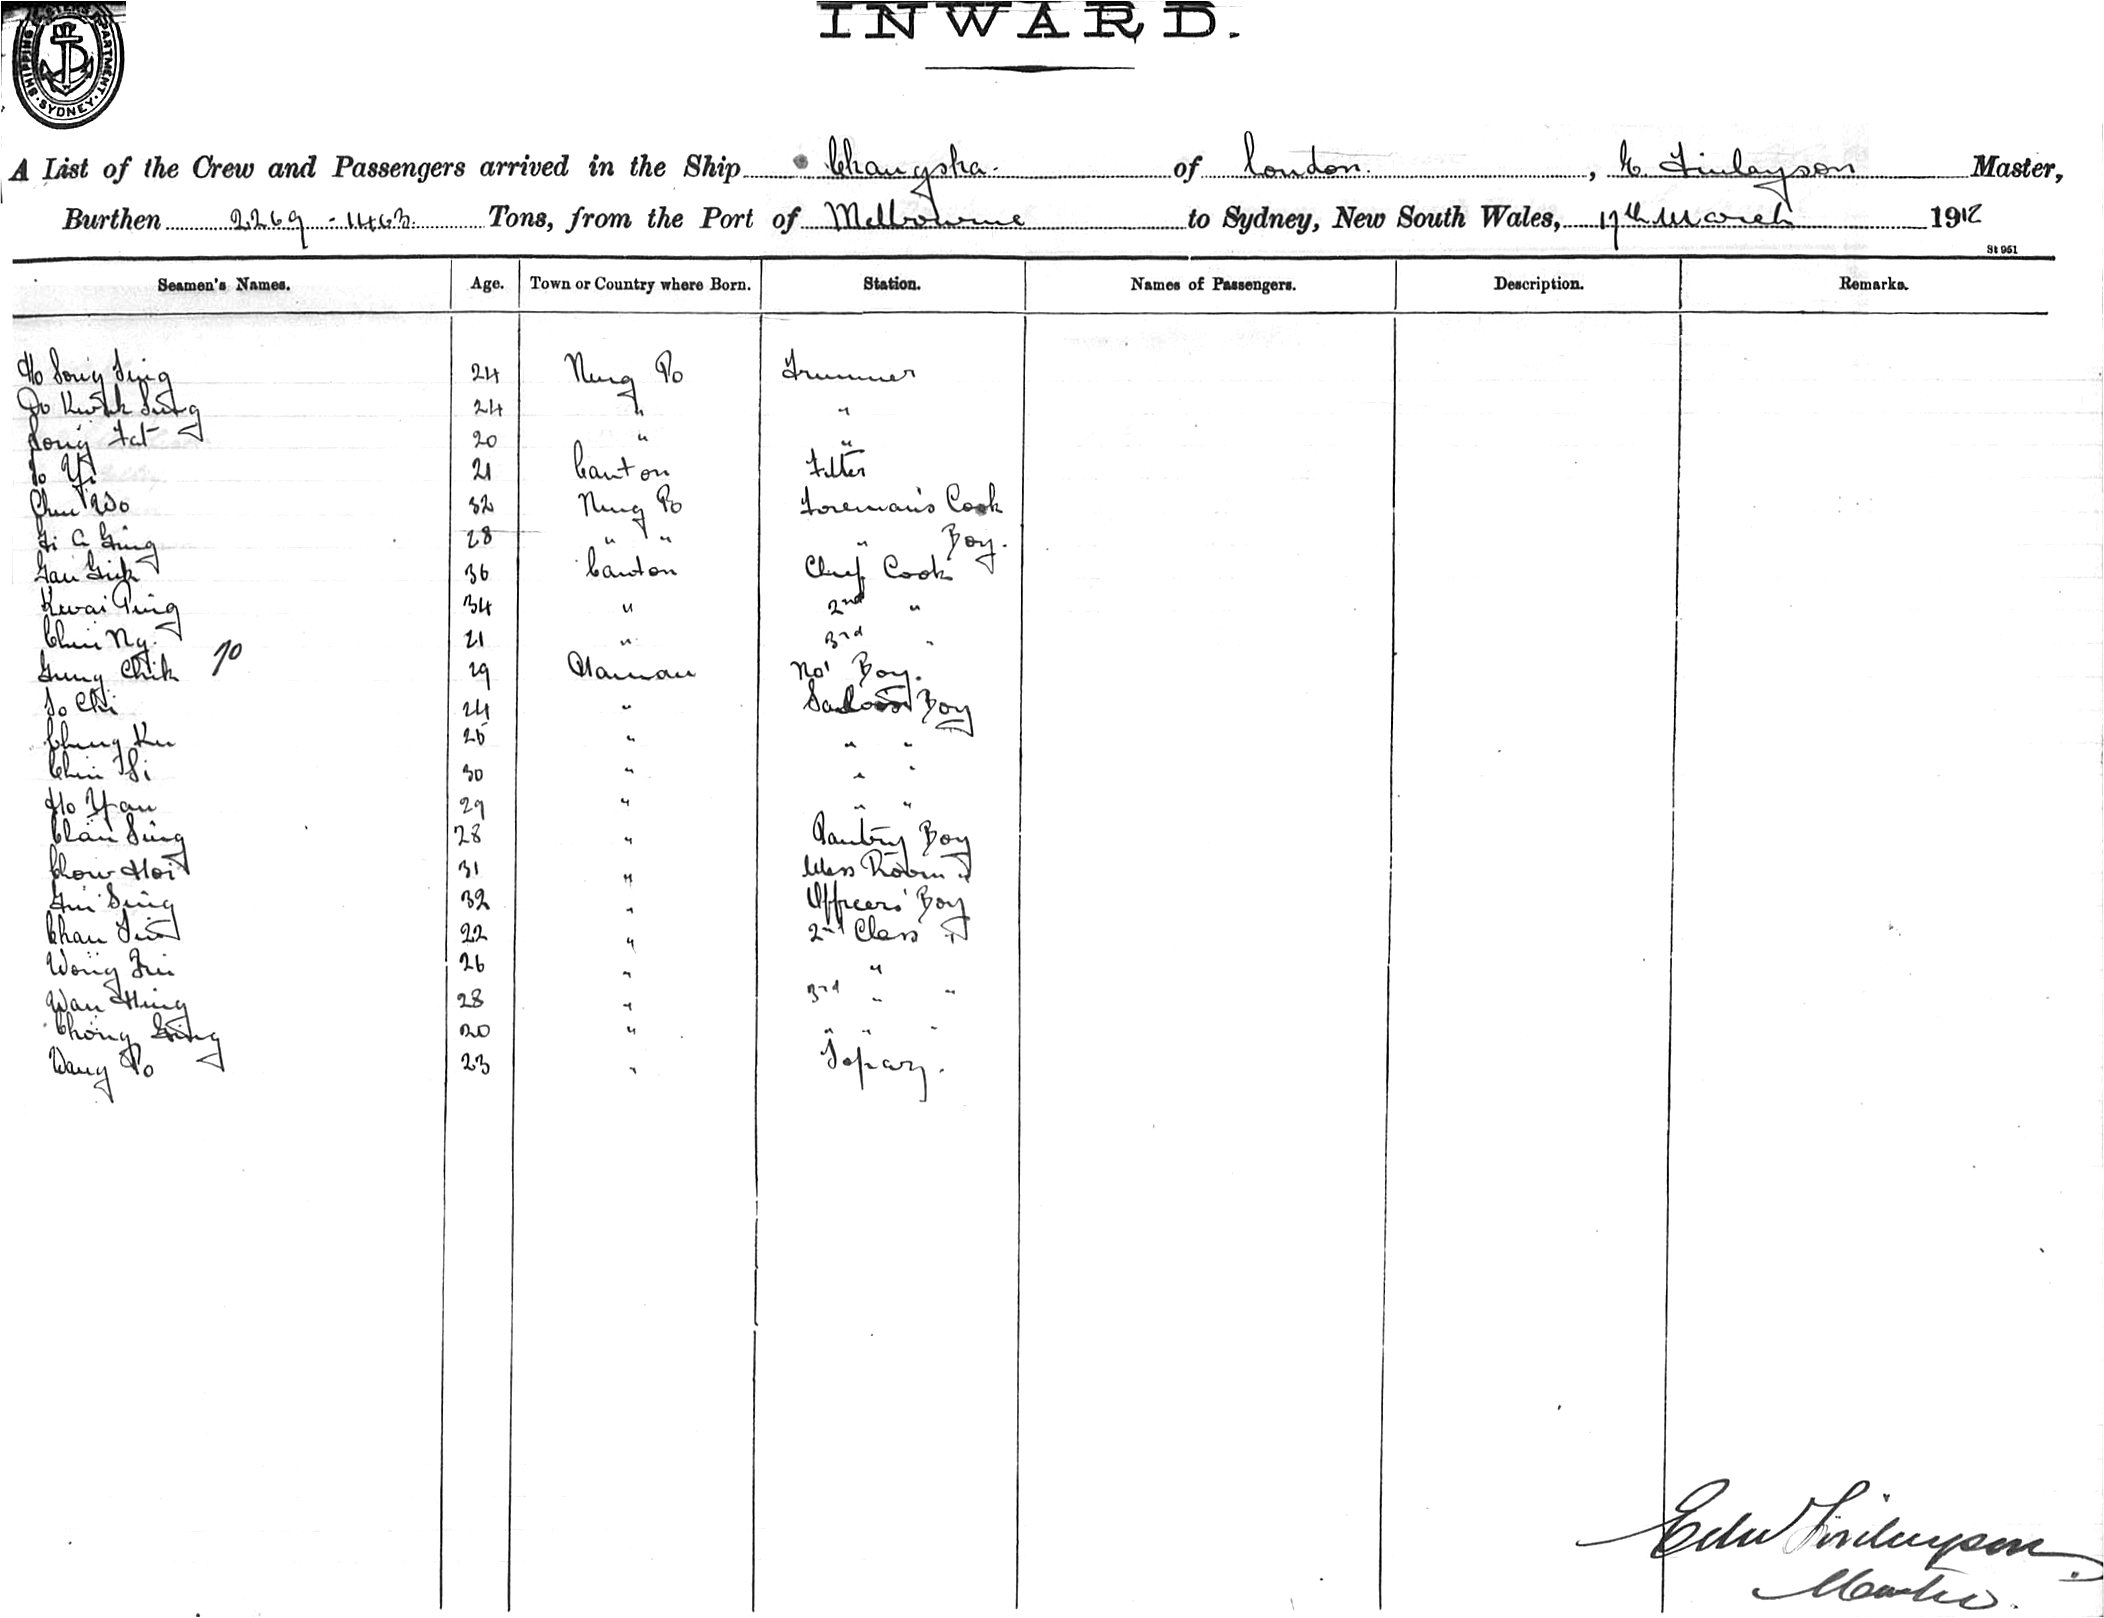 INWARD.
SHIPPING DEPARTMENT SYDNEY
A List of the Crew and Passengers arrived in the Ship Changsha. of London. , E. Finlayson Master,
Burthen 2269 - 1463. Tons, from the Port of Melbourne to Sydney, New South Wales, 17th March 1912
St 951
Seamen's Names. Age. Town or Country where Born. Station. Names of Passengers. Description. Remarks.
Ho Song Sing 24 Ning Po Trimmer
Kwok Sung 24 " "
Song Fat 20 " "
Yi 21 Canton Fitter
Chu Wo 32 Ning Po Foreman's Cook
28 " " " Boy.
36 Canton Chief Cook
Kwai Ping 34 " 2nd "
Chin Ng. 21 " 3rd "
Chik 70 29 No 1 Boy.
So Chi 24 " Saloon Boy
Chung Ku 26 " " "
Chin 30 " " "
Ho Yau 29 " " "
Chan Sing 28 " Pantry Boy
Chow Hoi 31 " Mess Room "
Sing 32 " Officers' Boy
Chan 22 " 2nd Class "
Wong 26 " "
Wan Hing 28 " 3rd " "
Chong 20 " " " "
Wang Po 23 " Topaz.
Edw Finlayson
Master.